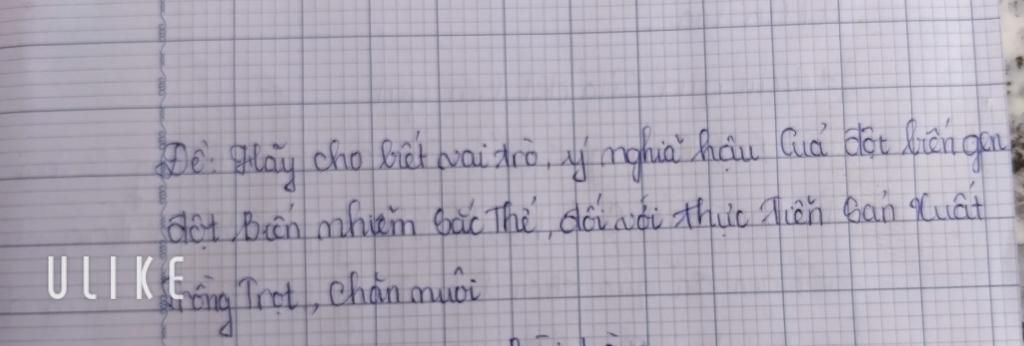 Đề: Hãy cho biết vai trò, ý nghĩa hậu quả đột biến gen
đột biến nhiễm sắc thể, đối với thực tiễn sản xuất
trồng Trọt, chăn nuôi
ULIKE